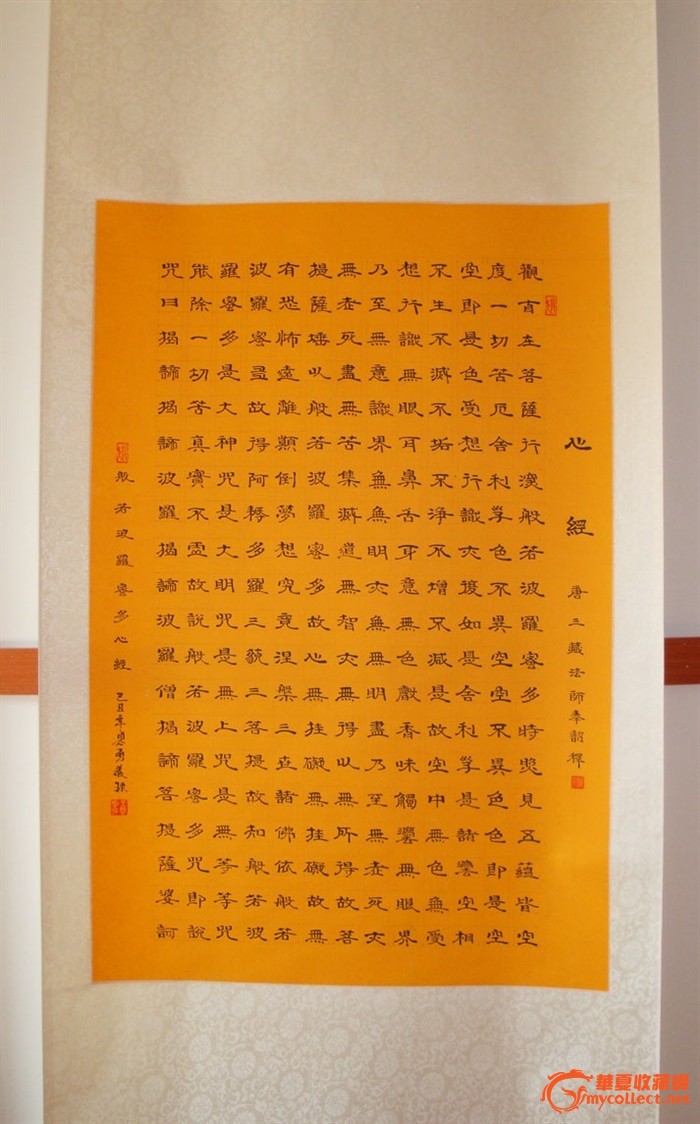 心經
唐三藏法師奉詔譯
觀自在菩薩行深般若波羅蜜多時照見五蘊皆空
度一切苦厄舍利子色不異空空不異色色即是空
空即是色受想行識亦復如是舍利子是諸法空相
不生不滅不垢不淨不增不減是故空中無色無受
想行識無眼耳鼻舌身意無色聲香味觸法無眼界
乃至無意識界無無明亦無無明盡乃至無老死亦
無老死盡無苦集滅道無智亦無得以無所得故菩
提薩埵以般若波羅蜜多故心無挂礙無挂礙故無
有恐怖遠離顛倒夢想究竟涅槃三世諸佛依般若
波羅蜜多故得阿耨多羅三藐三菩提故知般若波
羅蜜多是大神咒是大明咒是無上咒是無等等咒
能除一切苦真實不虛故說般若波羅蜜多咒即說
咒曰揭諦揭諦波羅揭諦波羅僧揭諦菩提薩婆訶
般若波羅蜜多心經
己丑年
華夏收藏網
mycollect.net